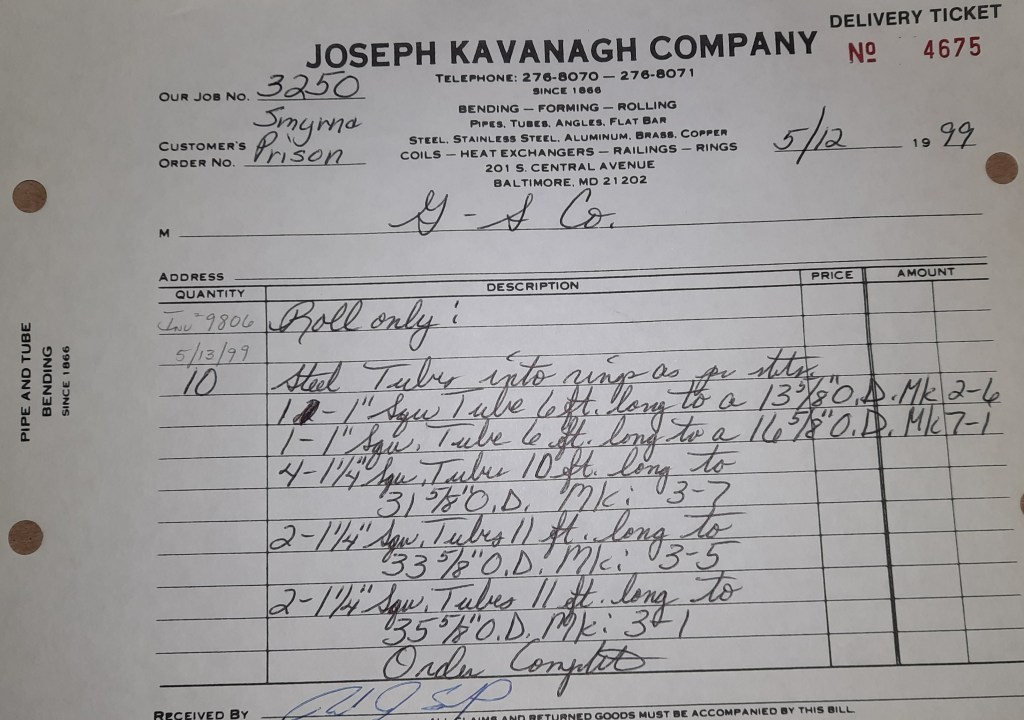 DELIVERY TICKET
JOSEPH KAVANAGH COMPANY
Nº 4675
TELEPHONE: 276-8070 — 276-8071
SINCE 1866
OUR JOB NO. 3250
BENDING — FORMING — ROLLING
PIPES, TUBES, ANGLES, FLAT BAR
STEEL, STAINLESS STEEL, ALUMINUM, BRASS, COPPER
COILS — HEAT EXCHANGERS — RAILINGS — RINGS
201 S. CENTRAL AVENUE
BALTIMORE, MD 21202
Smyrna
CUSTOMER'S
ORDER NO. Prison
5/12 19 99
M G-S Co.
ADDRESS
QUANTITY DESCRIPTION PRICE AMOUNT
Inv # 9806 Roll only:
5/13/99
10 Steel Tubes into rings as per
1 - 1" Squ Tube 6 ft. long to a 13 5/8" O.D. Mk 2-6
1 - 1" Squ. Tube 6 ft. long to a 16 5/8" O.D. Mk 7-1
4 - 1 1/4" Squ. Tubes 10 ft. long to
31 5/8" O.D. Mk: 3-7
2 - 1 1/4" Squ. Tubes 11 ft. long to
33 5/8" O.D. Mk: 3-5
2 - 1 1/4" Squ. Tubes 11 ft. long to
35 5/8" O.D. Mk: 3-1
Order Complete
RECEIVED BY
ALL CLAIMS AND RETURNED GOODS MUST BE ACCOMPANIED BY THIS BILL
PIPE AND TUBE
BENDING
SINCE 1866